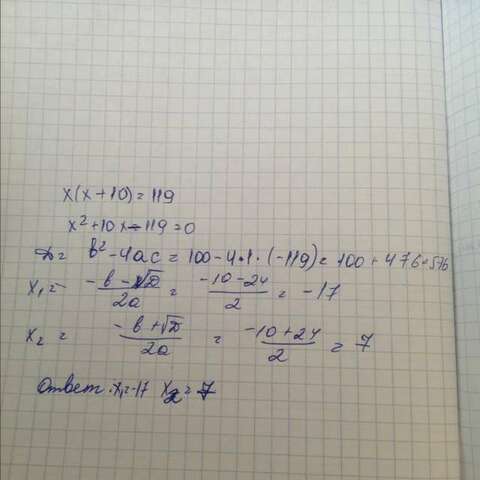 x(x+10)=119
x²+10x-119=0
D= b²-4ac=100-4·1·(-119)=100+476=576
x₁= -b-√D/2a = -10-24/2 = -17
x₂ = -b+√D/2a = -10+24/2 = 7
Ответ: x₁=-17 x₂=7